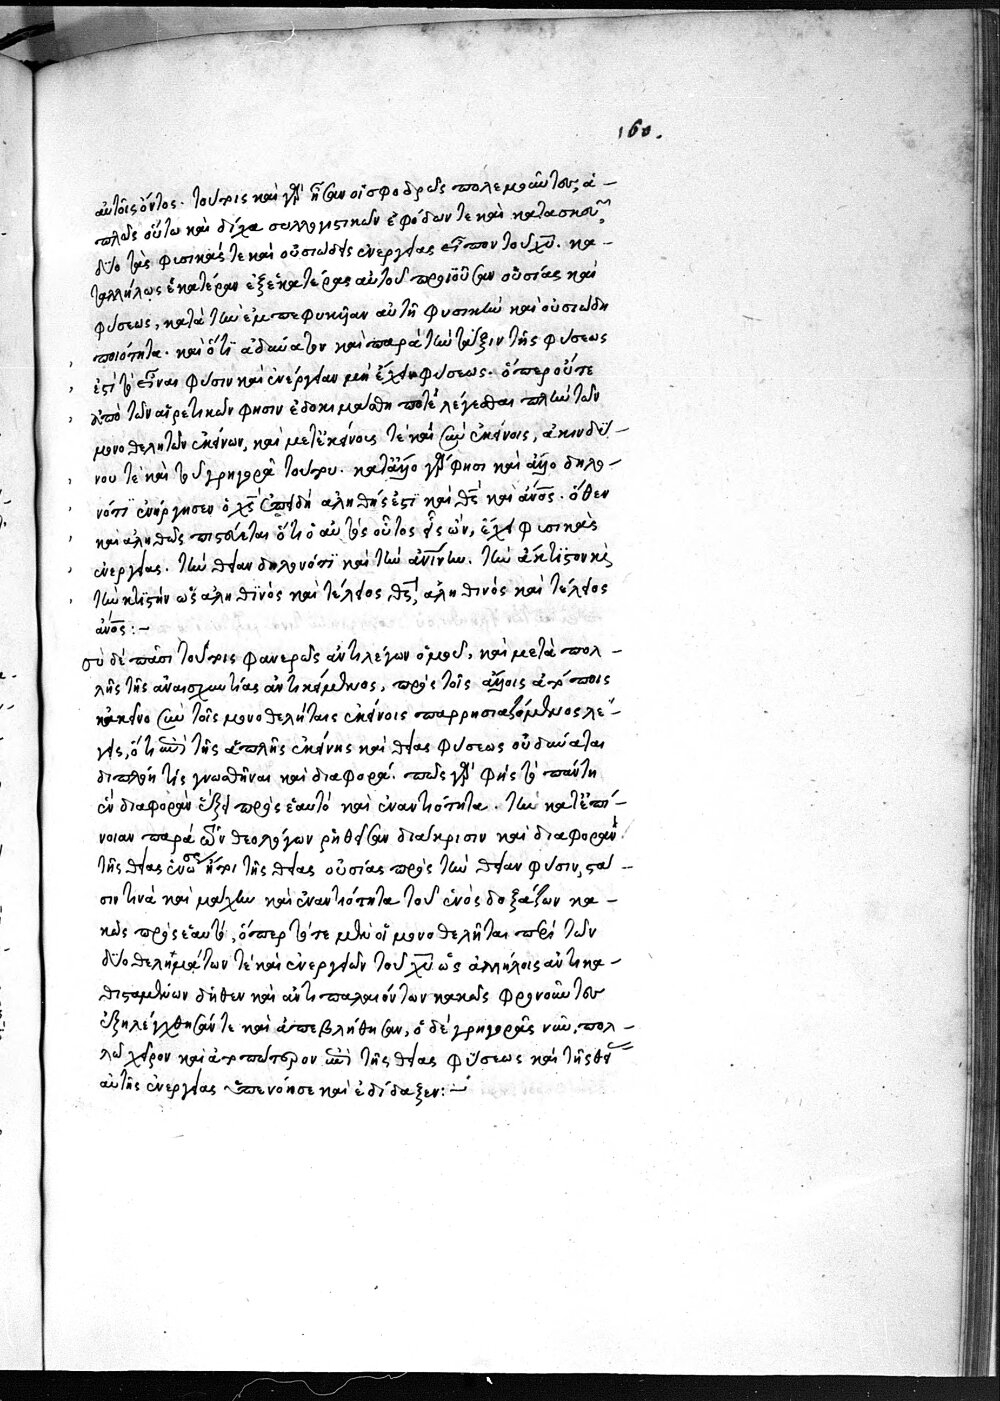 160.
αὐτοῖς ὄντος. τούτοις καὶ γὰρ ἦσαν οἱ σφοδρῶς πολεμοῦντες, ἁ-
πλῶς οὕτω καὶ δίχα συλλογιστικῶν ἐφόδων τε καὶ κατασκευῶν
δύο τὰς φυσικάς τε καὶ οὐσιώδεις ἐνεργείας εἶπον τοῦ χυ. κα-
ταλλήλως ἑκατέραν ἐξ ἑκατέρας αὐτοῦ προϊοῦσαν οὐσίας καὶ
φύσεως, κατὰ τὴν ἐμπεφυκυῖαν αὐτῇ φυσικὴν καὶ οὐσιώδη
ποιότητα. καὶ ὅτι ἀδύνατον καὶ παρὰ τὴν τάξιν τῆς φύσεως
ἐστὶ τὸ εἶναι φύσιν καὶ ἐνέργειαν μὴ ἔχειν φύσεως. ὅπερ οὔτε
ἀπὸ τῶν αἱρετικῶν φησιν ἐδοκιμάσθη ποτὲ λέγεσθαι πλὴν τῶν
μονοθελητῶν ἐκείνων, καὶ μετ' ἐκείνους τε καὶ σὺν ἐκείνοις, ἀκινδύ-
νου τε καὶ τοῦ γρηγορᾶ τούτου. κατ' ἄλλο γάρ φησι καὶ ἄλλο δηλο-
νότι ἐνήργησεν ὁ χς ἐπειδὴ ἀληθής ἐστι καὶ θς καὶ ἄνος. ὅθεν
καὶ ἀληθῶς πιστεύεται ὅτι ὁ αὐτὸς οὗτος εἷς ὢν, ἔχει φυσικὰς
ἐνεργείας. τὴν θείαν δηλονότι καὶ τὴν ἀνίνην. τὴν ἄκτιστον καὶ
τὴν κτιστὴν ὡς ἀληθινὸς καὶ τέλειος θς, ἀληθινὸς καὶ τέλειος
ἄνος:-
σὺ δὲ πᾶσι τούτοις φανερῶς ἀντιλέγων ὁμοῦ, καὶ μετὰ πολ-
λῆς τῆς ἀναισχυντίας ἀντικείμενος, πρὸς τοῖς ἄλλοις ἀτόποις
κἀκεῖνο σὺν τοῖς μονοθελήταις ἐκείνοις παρρησιαζόμενος λέ-
γεις, ὅτι ἐπὶ τῆς ἁπλῆς ἐκείνης καὶ θείας φύσεως οὐ δύναται
διπλόη τις γνωσθῆναι καὶ διαφορά. πῶς γὰρ φῂς τὸ πάντῃ
ἓν διαφορὰν ἕξει πρὸς ἑαυτὸ καὶ ἐναντιότητα. τὴν κατ' ἐπί-
νοιαν παρὰ τῶν θεολόγων ῥηθεῖσαν διάκρισιν καὶ διαφορὰν
τῆς θείας ἐνώσεως ἤτοι τῆς θείας οὐσίας πρὸς τὴν θείαν φύσιν, στά-
σιν τινὰ καὶ μάχην καὶ ἐναντιότητα τοῦ ἑνὸς δοξάζων κα-
κῶς πρὸς ἑαυτό, ὅπερ τότε μὲν οἱ μονοθελῆται περὶ τῶν
δύο θελημάτων τε καὶ ἐνεργειῶν τοῦ χυ ὡς ἀλλήλοις ἀντικα-
θισταμένων δῆθεν καὶ ἀντιπαλαιόντων κακῶς φρονοῦντες
ἐξηλέγχθησάν τε καὶ ἀπεβλήθησαν, ὁ δὲ γρηγορᾶς νῦν, πολ-
λῷ χεῖρον καὶ ἀτοπώτερον ἐπὶ τῆς θείας φύσεως καὶ τῆς θεί
αὐτῆς ἐνεργείας ὑπενόησε καὶ ἐδίδαξεν:-